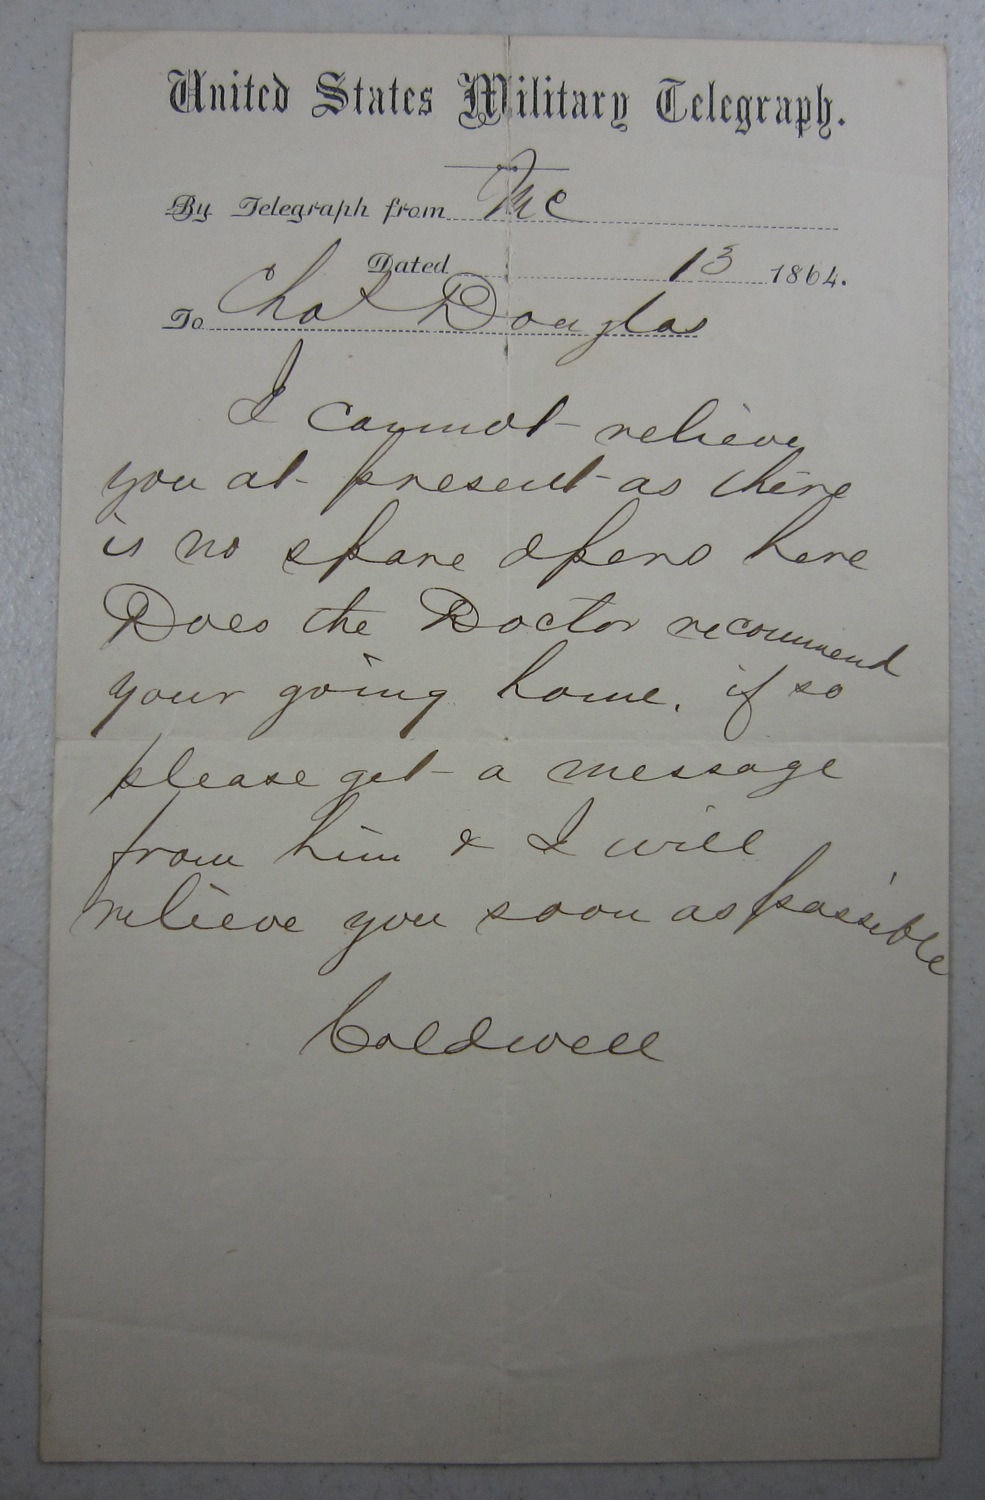 United States Military Telegraph.
By Telegraph from Mc
Dated 13 1864.
To Chas Douglas
I cannot relieve
you at present as there
is no spare opers here
Does the Doctor recommend
your going home. if so
please get a message
from him & I will
relieve you soon as possible
Caldwell